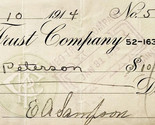 10 1914 No. 5
Trust Company 52-163
Peterson $10
E A Sampson